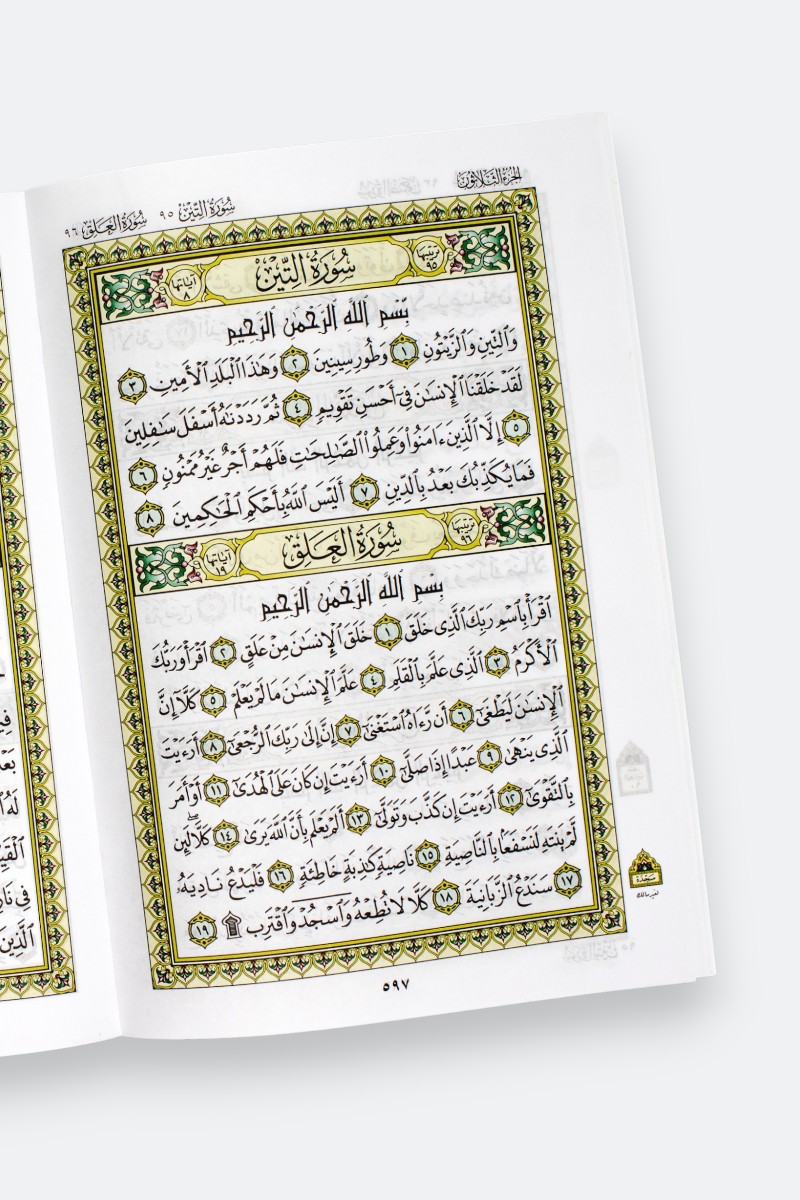 الجزء الثلاثون
سورة التين ٩٥ سورة العلق ٩٦
ترتيبها ٩٥ سُورَةُ التِّينِ آياتها ٨
بِسْمِ اللَّهِ الرَّحْمَٰنِ الرَّحِيمِ
وَالتِّينِ وَالزَّيْتُونِ ١ وَطُورِ سِينِينَ ٢ وَهَٰذَا الْبَلَدِ الْأَمِينِ ٣
لَقَدْ خَلَقْنَا الْإِنسَٰنَ فِىٓ أَحْسَنِ تَقْوِيمٍ ٤ ثُمَّ رَدَدْنَٰهُ أَسْفَلَ سَٰفِلِينَ
٥ إِلَّا الَّذِينَ ءَامَنُوا۟ وَعَمِلُوا۟ الصَّٰلِحَٰتِ فَلَهُمْ أَجْرٌ غَيْرُ مَمْنُونٍ ٦
فَمَا يُكَذِّبُكَ بَعْدُ بِالدِّينِ ٧ أَلَيْسَ اللَّهُ بِأَحْكَمِ الْحَٰكِمِينَ ٨
ترتيبها ٩٦ سُورَةُ الْعَلَقِ آياتها ١٩
بِسْمِ اللَّهِ الرَّحْمَٰنِ الرَّحِيمِ
اقْرَأْ بِاسْمِ رَبِّكَ الَّذِى خَلَقَ ١ خَلَقَ الْإِنسَٰنَ مِنْ عَلَقٍ ٢ اقْرَأْ وَرَبُّكَ
الْأَكْرَمُ ٣ الَّذِى عَلَّمَ بِالْقَلَمِ ٤ عَلَّمَ الْإِنسَٰنَ مَا لَمْ يَعْلَمْ ٥ كَلَّآ إِنَّ
الْإِنسَٰنَ لَيَطْغَىٰٓ ٦ أَن رَّءَاهُ اسْتَغْنَىٰٓ ٧ إِنَّ إِلَىٰ رَبِّكَ الرُّجْعَىٰٓ ٨ أَرَءَيْتَ
الَّذِى يَنْهَىٰ ٩ عَبْدًا إِذَا صَلَّىٰٓ ١٠ أَرَءَيْتَ إِن كَانَ عَلَى الْهُدَىٰٓ ١١ أَوْ أَمَرَ
بِالتَّقْوَىٰٓ ١٢ أَرَءَيْتَ إِن كَذَّبَ وَتَوَلَّىٰٓ ١٣ أَلَمْ يَعْلَم بِأَنَّ اللَّهَ يَرَىٰ ١٤ كَلَّا لَئِن
لَّمْ يَنتَهِ لَنَسْفَعًۢا بِالنَّاصِيَةِ ١٥ نَاصِيَةٍ كَٰذِبَةٍ خَاطِئَةٍ ١٦ فَلْيَدْعُ نَادِيَهُۥ
١٧ سَنَدْعُ الزَّبَانِيَةَ ١٨ كَلَّا لَا تُطِعْهُ وَاسْجُدْ وَاقْتَرِب ۩ ١٩
سجدة
لغير مالك
٥٩٧
الَّذِينَ